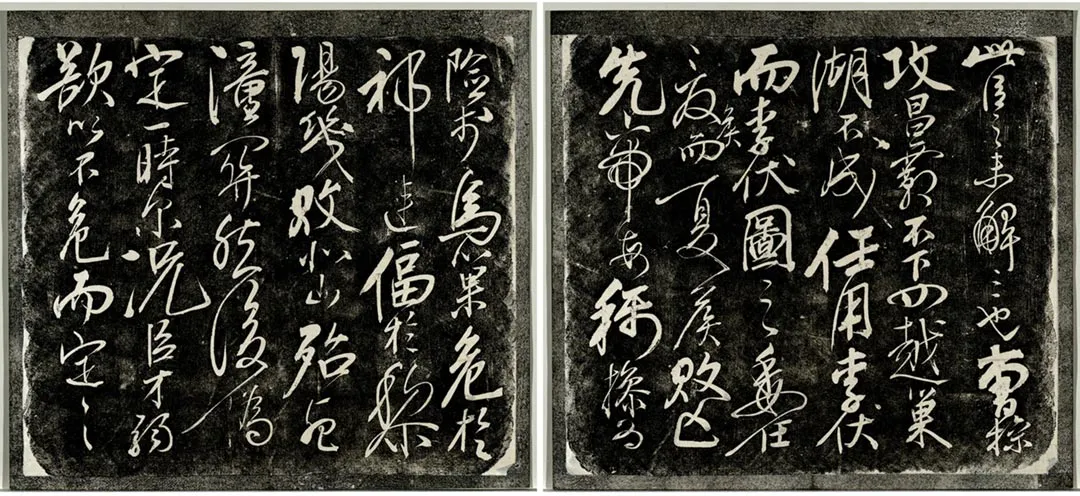 險於烏巢危於
祁連偪於黎
陽幾敗北山殆死
潼關然後偽
定一時尔況臣才弱
欲以不危而定之
此臣之未解三也曹操
攻昌霸不下四越巢
湖不成任用李伏
而李伏圖之委任
夏侯而夏侯敗亡
先帝每稱操為